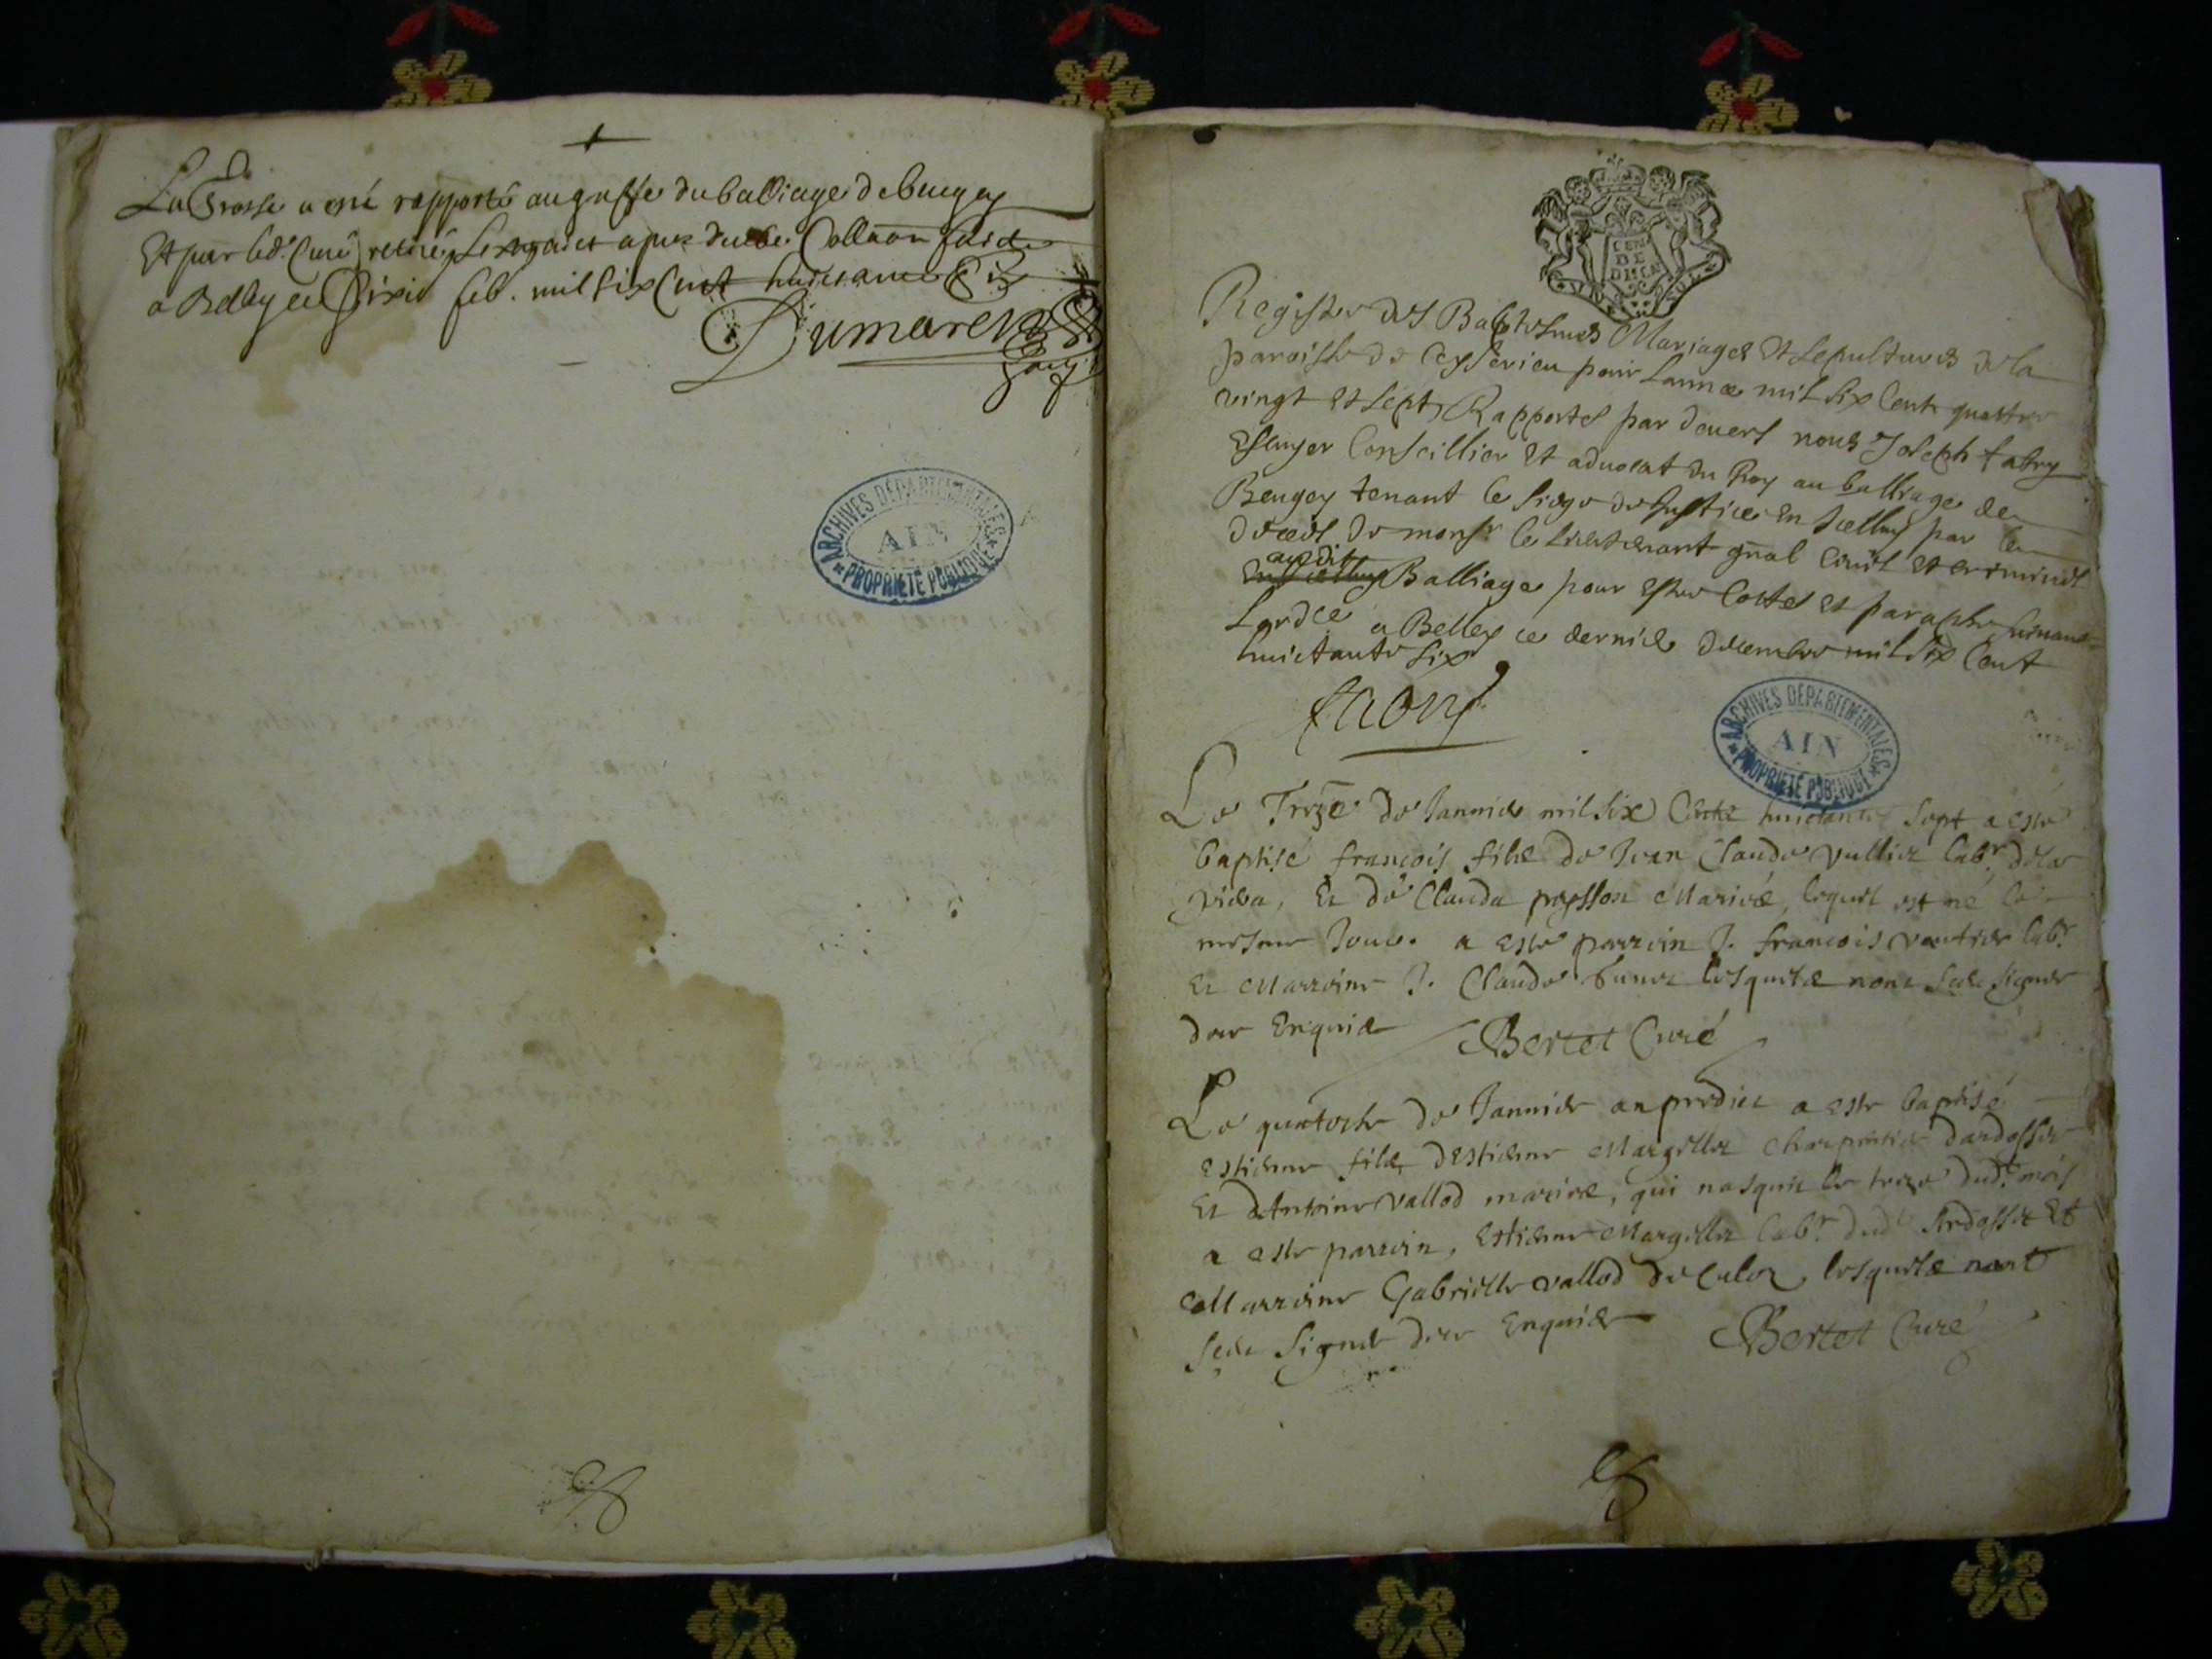 La Grosse a esté rapportée au greffe du balliage de bugey
Et par led. Curé retiré apres deube Collaon faicte
a Belley ce feb. mil six Cent huictante
Dumarest
ARCHIVES DÉPARTEMENTALES
AIN
PROPRIÉTÉ PUBLIQUE
GEN
DE
Registre des Baptesmes Mariages Et sepultures de la
paroisse de Ceyserieu pour lannee mil six Cent quattre
vingt et sept, Rapportes par devers nous Joseph fabry
Escuyer Conseillier Et advocat du Roy au balliage de
Beugey tenant le siege de Justice en Icelluy par le
deceds de monsr le Lieutenant gnal Civil et criminel
audit
En Icelluy Balliage pour estre Cottes et paraphe suivant
Lordce a Belley ce dernier decembre mil six Cent
huictante six
ARCHIVES DÉPARTEMENTALES
AIN
PROPRIÉTÉ PUBLIQUE
Le Treze de Janvier mil six Cents huictante Sept a esté
baptisé francois fils de Jean Claude Vullier labr de
et de Claude mariés, lequel est né le
mesme Jour. a esté parrein J. francois labr
et Marreine J. Claude lesquels nont sceu signer
de ce Enquis Bertet Curé
Le quatorse de Janvier an predict a esté baptisé
estienne fils destienne Margillier Charpentier dardosset
et dAntoine vallod mariés, qui nasquit le treze dudt mois
a esté parrein, Estienne Margillier labr dudt Ardosset Et
Marreine Gabrielle vallod de Culoz, lesquels nont
sceu signer de ce Enquis Bertet Curé